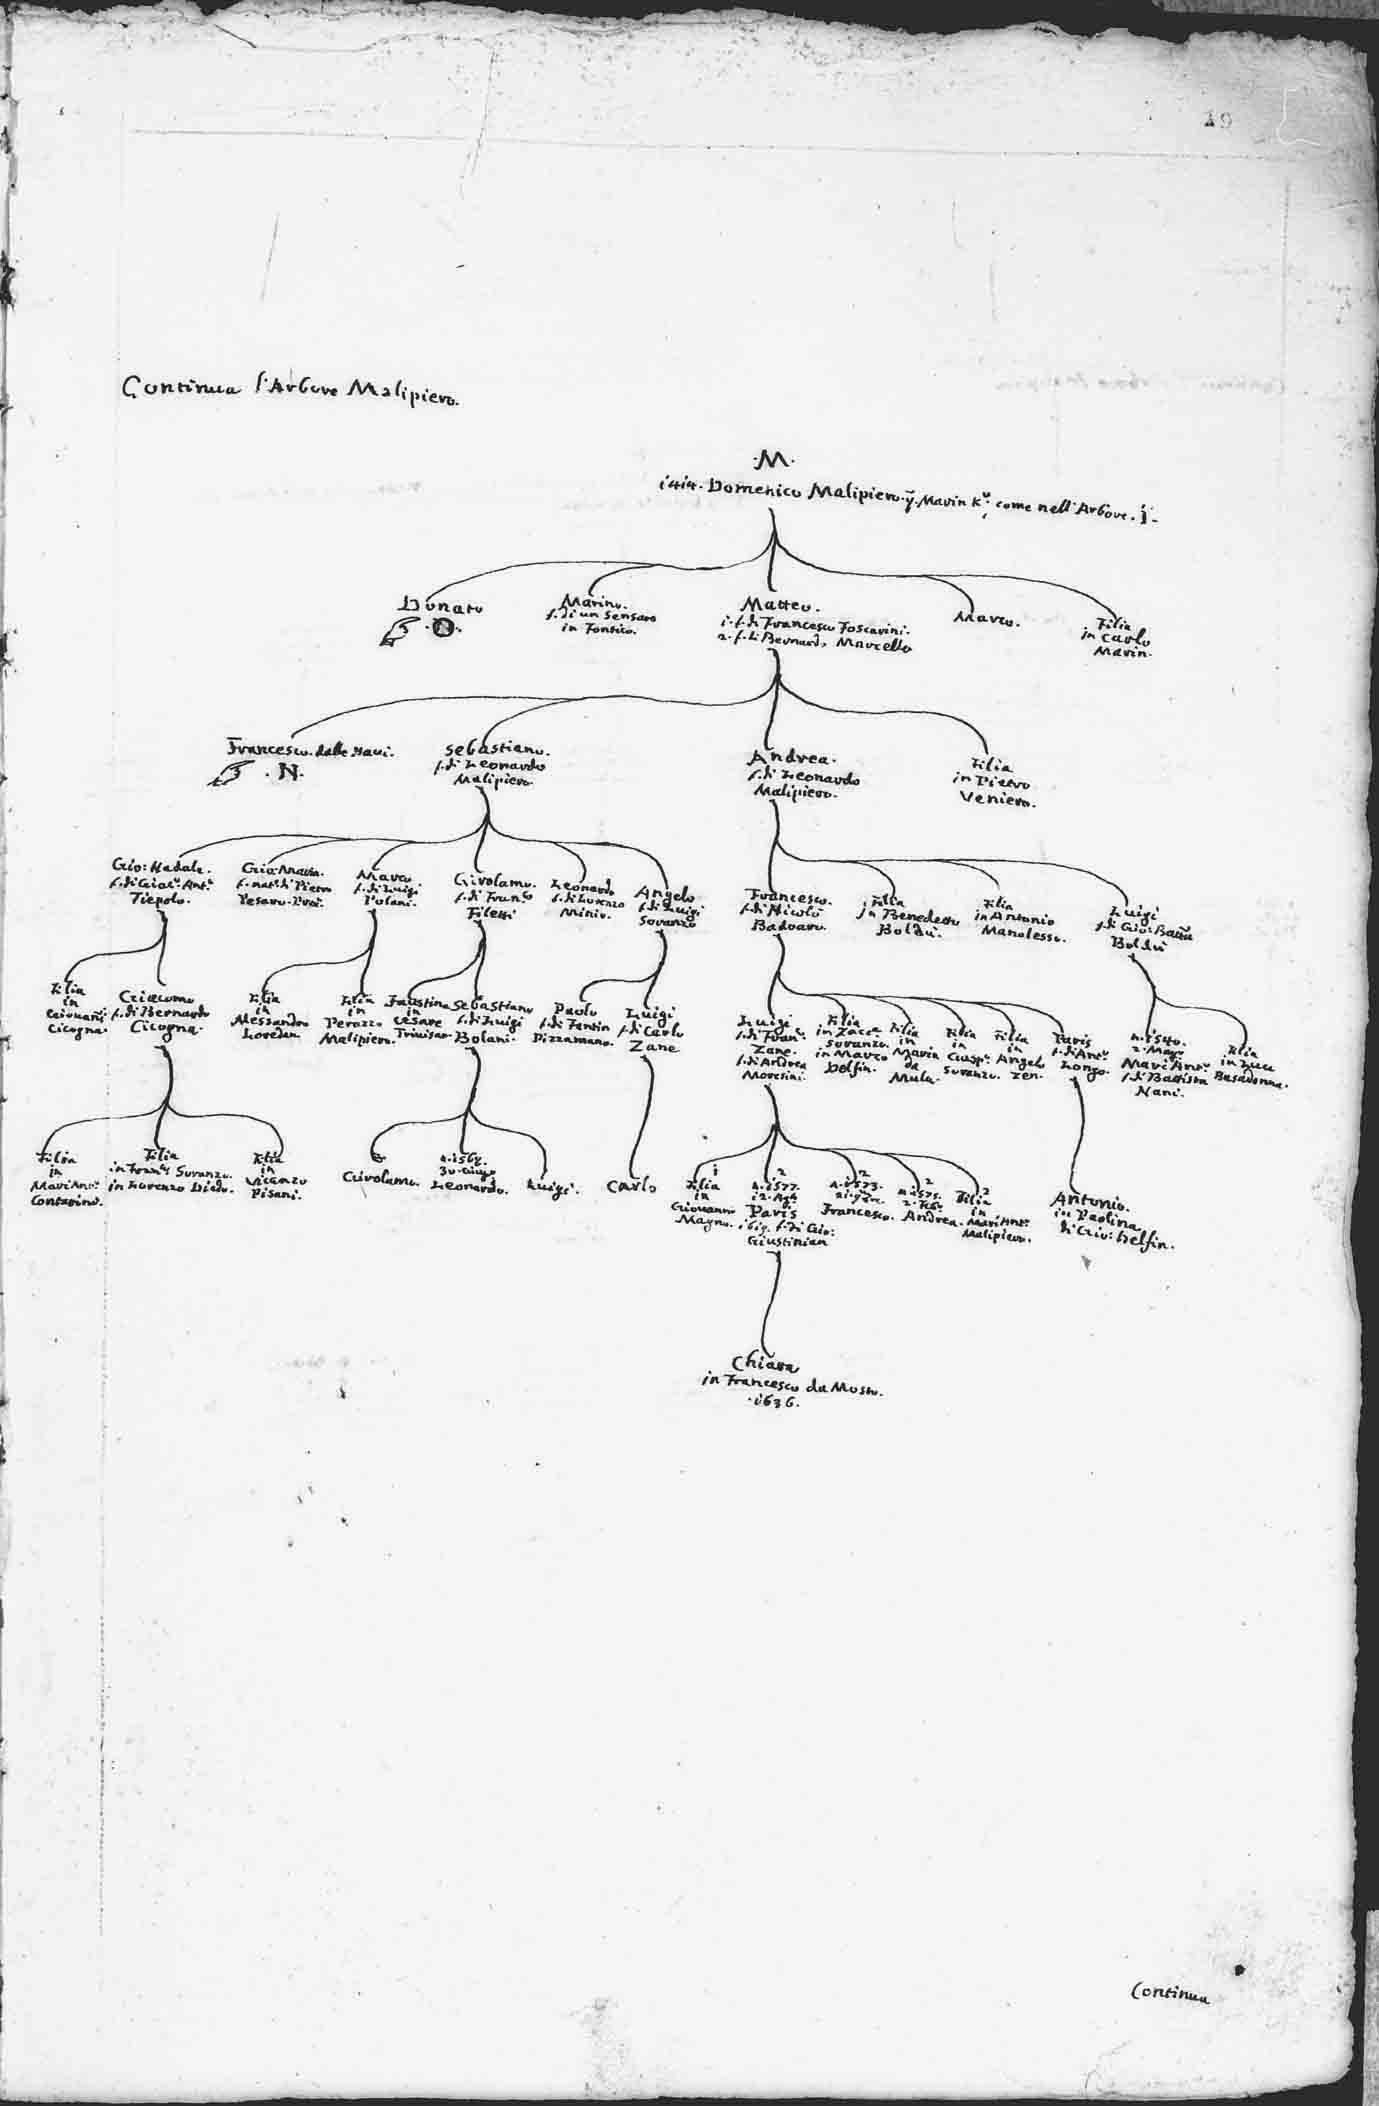 49
Continua l'Arbore Malipiero.
.M.
1414. Domenico Malipiero. q. Marin Kr. come nell'Arbore. I.
Donato
.O.
Marino.
f. di un sensaro
in Fontico.
Matteo.
1. f. di Francesco Foscarini.
2. f. di Bernardo Marcello
Marco.
Filia
in Carlo
Marin.
Francesco. dalle Navi.
.N.
Sebastiano.
f. di Leonardo
Malipiero
Andrea.
f. di Leonardo
Malipiero.
Filia
in Pietro
Veniero.
Gio: Nadale.
f. di Giac.o Ant.o
Tiepolo.
Gio: Maria.
f. nat. di Pietro
Pesaro. Proc.
Marco
f. di Luigi
Polani.
Girolamo.
f. di Franc.o
Filetti
Leonardo
f. di Lorenzo
Minio.
Angelo
f. di Luigi
Soranzo
Francesco.
f. di Nicolò
Badoaro.
Filia
in Benedetto
Boldù.
Filia
in Antonio
Manolesso.
Luigi
f. di Gio: Batta
Boldù
Filia
in
Giovanni
Cicogna.
Giacomo
f. di Bernardo
Cicogna.
Filia
in
Alessandro
Loredan.
Filia
in
Perazzo
Malipiero.
Faustina
in
Cesare
Trivisan.
Sebastiano
f. di Luigi
Bolani.
Paolo
f. di Fantin
Pizzamano.
Luigi
f. di Carlo
Zane
Luigi
f. di Franc.
Zane.
f. di Andrea
Moresini.
Filia
in Zacca
Soranzo.
in Marco
Delfin.
Filia
in
Marin
da
Mula.
Filia
in
Gasp.
Soranzo.
Filia
in
Angelo
Zen.
Paris
f. di Ant.o
Longo.
n. 1540.
2. Mago
Marc'Ant.o
f. di Battista
Nani.
Filia
in Luca
Basadonna.
Filia
in
Marc'Ant.o
Contarino.
Filia
in Franc.o Soranzo.
in Lorenzo Diedo.
Filia
in
Vicenzo
Pisani.
Girolamo.
30. Giugo
Leonardo.
Luigi.
Carlo
1
Filia
in
Giovanni
Magno.
2
n. 1577.
12. Ag.o
Paris
1619. f. di Gio:
Giustinian
2
n. 1573.
Francesco.
2
n. 1575.
2. Feb.
Andrea.
2
Filia
in
Marc'Ant.o
Malipiero.
Antonio.
in Paolina
di Gio: Delfin.
Chiara
in Francesco da Mosto.
.1636.
Continua